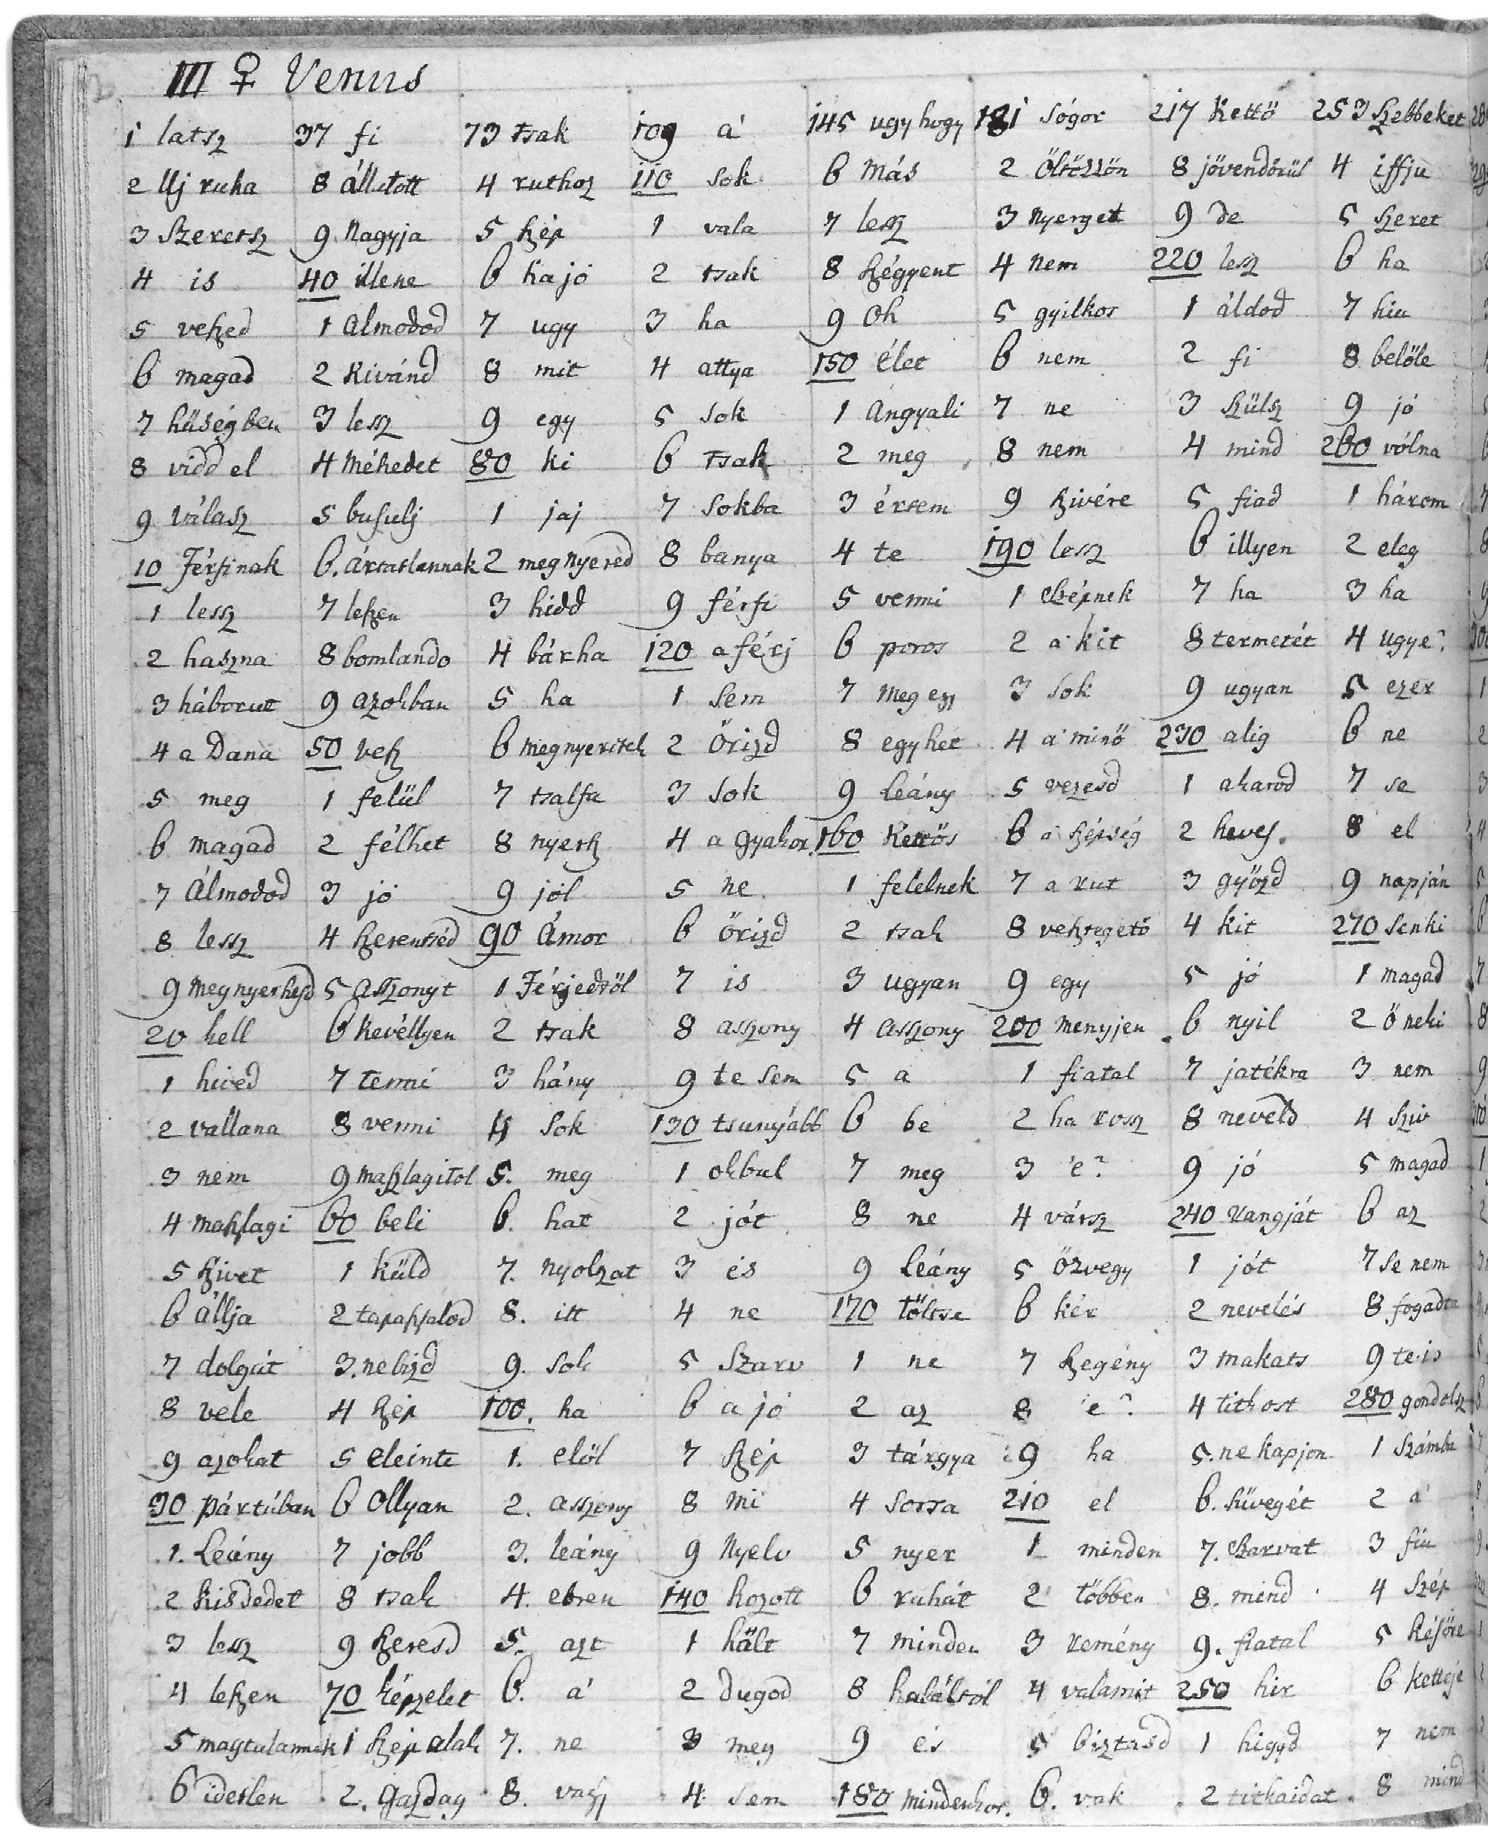 III ♀ Venus
1 latsz 37 fi 73 tsak 109 a' 145 ugy hogy 181 sógor 217 kettö 253 szebbeket
2 Uj ruha 8 állitott 4 ruthoz 110 sok 6 más 2 öltözzön 8 jövendörül 4 iffju
3 szeretsz 9 nagyja 5 szép 1 vala 7 lessz 3 nyerget 9 de 5 szeret
4 is 40 illene 6 ha jó 2 tsak 8 szégyent 4 nem 220 lesz 6 ha
5 veszed 1 almodod 7 ugy 3 ha 9 Oh 5 gyilkos 1 áldod 7 hiu
6 magad 2 kivánd 8 mit 4 attya 150 élet 6 nem 2 fi 8 belöle
7 hüségben 3 lessz 9 egy 5 sok 1 Angyali 7 ne 3 szülsz 9 jó
8 vidd el 4 méhedet 80 ki 6 tsak 2 meg 8 nem 4 mind 260 vólna
9 válasz 5 busulj 1 jaj 7 sokba 3 értem 9 szivére 5 fiad 1 három
10 Férfinak 6. ártatlannak 2 meg nyered 8 banya 4 te 190 lessz 6 illyen 2 eleg
1 lessz 7 leszen 3 hidd 9 férfi 5 venni 1 szépnek 7 ha 3 ha
2 haszna 8 bomlando 4 bárha 120 a férj 6 poros 2 a' kit 8 termetét 4 ugye?
3 háborut 9 azokban 5 ha 1 sem 7 meg egy 3 sok 9 ugyan 5 ezer
4 a Dana 50 vesz 6 megnyeritek 2 örizd 8 egyhet 4 a' minö 230 alig 6 ne
5 meg 1 felül 7 tsalfa 3 sok 9 leány 5 vezesd 1 akarod 7 se
6 magad 2 félhet 8 nyersz 4 a gyakor 160 kettös 6 a szépség 2 heves. 8 el
7 Álmodod 3 jó 9 jól 5 ne 1 felelnek 7 a rut 3 győzd 9 napján
8 lessz 4 szerentséd 90 Ámor 6 örizd 2 tsak 8 vesztegetö 4 kit 270 senki
9 megnyerhesd 5 asszonyt 1 Férjedröl 7 is 3 ugyan 9 egy 5 jó 1 magad
20 kell 6 kevéllyen 2 tsak 8 asszony 4 asszony 200 menyjen 6 nyil 2 ö neki
1 hived 7 tenni 3 hány 9 te sem 5 a 1 fiatal 7 játékra 3 nem
2 vallana 8 venni 4 sok 130 tsunyább 6 be 2 ha rosz 8 neveld 4 sziv
3 nem 9 maszlagitol 5. meg 1 okbul 7 meg 3 'e? 9 jó 5 magad
4 maszlagi 60 beli 6. hat 2 jót 8 ne 4 vársz 240 rangját 6 az
5 szivet 1 küld 7. nyolzat 3 és 9 leány 5 özvegy 1 jót 7 se nem
6 állja 2 tapasztalod 8. itt 4 ne 170 töltse 6 kér 2 nevelés 8. fogadta
7 dolgát 3. ne bizd 9. sok 5 szarv 1 ne 7 szegény 3 makats 9 te is
8 vele 4 szép 100. ha 6 a jó 2 az 8 'e? 4 titkost 280 gondolsz
9 azokat 5 eleinte 1. elöl 7 szép 3 tárgya 9 ha 5. ne kapjon 1 számba
30 pártában 6 Ollyan 2. asszony 8 mi 4 sorsa 210 el 6. süvegét 2 a'
1. Leány 7 jobb 3. leány 9 nyelv 5 nyer 1 minden 7. szarvat 3 fiu
2 kisdedet 8 tsak 4. ebren 140 hozott 6 ruhát 2 többen 8. mind 4 szép
3 lessz 9 keresd 5. azt 1 hált 7 minden 3 remény 9. fiatal 5 késöre
4 leszen 70 képzelet 6. a' 2 dugod 8 haláltól 4 valamit 250 hir 6 ketteje
5 magtalannak 1 szép alak 7. ne 3 meg 9 és 5 biztasd 1 higyd 7 nem
6 idetlen 2. gazdag 8. vagy 4 sem 180 mindenkor. 6. vak 2 titkaidat 8 mind